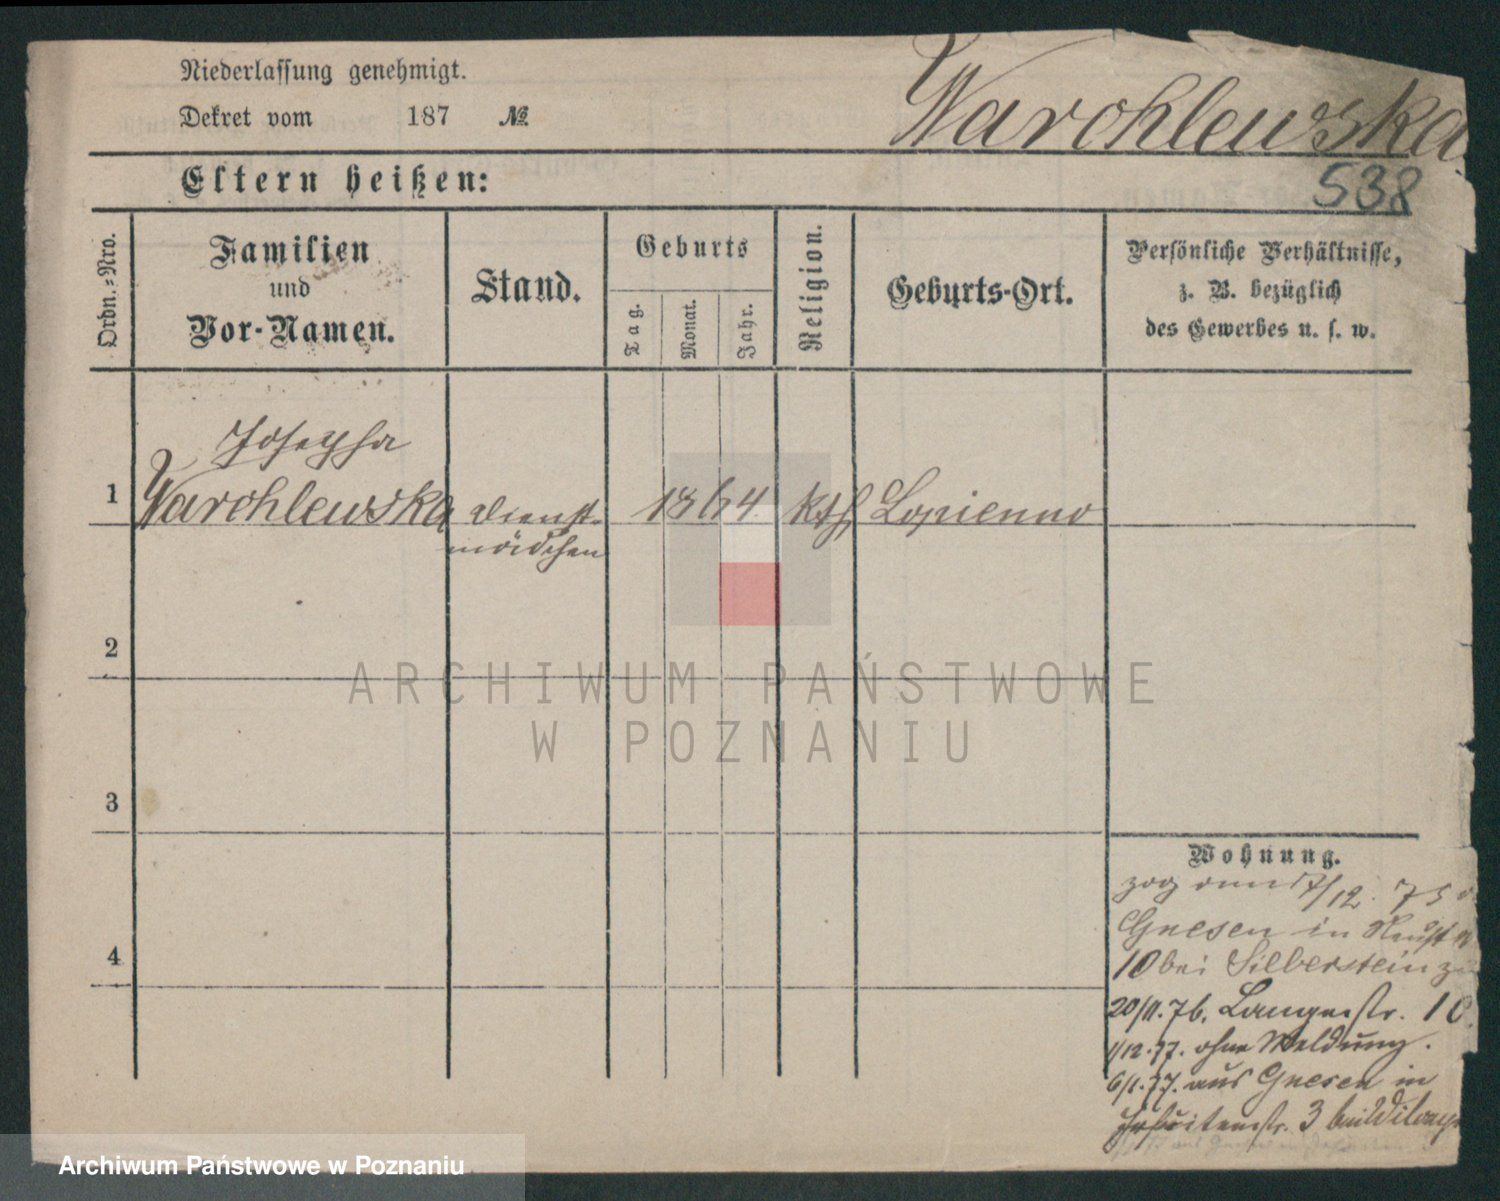 Niederlassung genehmigt.
Dekret vom 187 №
Warchlewska
538
Eltern heißen:
Ordn.-Nro.
Familien
und
Vor-Namen.
Stand.
Geburts
Tag.
Monat.
Jahr.
Religion.
Geburts-Ort.
Persönliche Verhältnisse,
z. B. bezüglich
des Gewerbes u. s. w.
Josepha
1 Warchlewska Dienst- 1864 kth Lopienno
mädchen
2
3
4
Wohnung.
zog am 17/12. 75
Gnesen in Neust
10 bei Silberstein
20/11. 76. Langestr. 10.
1/12. 77. ohne Meldung.
6/1. 77. aus Gnesen in
3 bei
ARCHIWUM PAŃSTWOWE
W POZNANIU
Archiwum Państwowe w Poznaniu